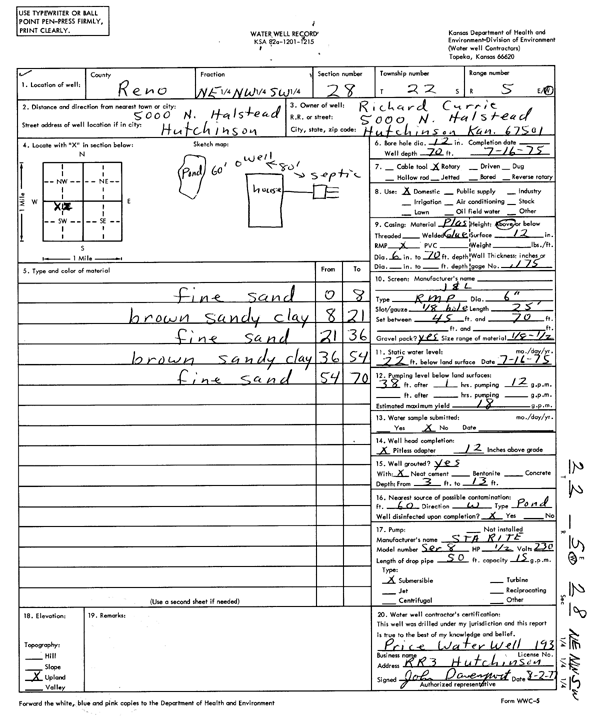 USE TYPEWRITER OR BALL
POINT PEN-PRESS FIRMLY,
PRINT CLEARLY.
WATER WELL RECORD
KSA 82a-1201-1215
Kansas Department of Health and
Environment-Division of Environment
(Water well Contractors)
Topeka, Kansas 66620
1. Location of well:
County
Reno
Fraction
NE 1/4 NW 1/4 SW 1/4
Section number
28
Township number
T 22 S
Range number
R 5 E/W
2. Distance and direction from nearest town or city:
5000 N. Halstead
Street address of well location if in city:
Hutchinson
3. Owner of well: Richard Currie
R.R. or street: 5000 N. Halstead
City, state, zip code: Hutchinson Kan. 67501
4. Locate with "X" in section below:
N
NW NE
W E
SW SE
S
1 Mile
1 Mile
X
Sketch map:
Pond 60' O well
80' septic
house
5. Type and color of material From To
fine sand 0 8
brown sandy clay 8 21
fine sand 21 36
brown sandy clay 36 54
fine sand 54 70
(Use a second sheet if needed)
6. Bore hole dia. 12 in. Completion date
Well depth 70 ft. 7-16-75
7. Cable tool X Rotary Driven Dug
Hollow rod Jetted Bored Reverse rotary
8. Use: X Domestic Public supply Industry
Irrigation Air conditioning Stock
Lawn Oil field water Other
9. Casing: Material Plas Height: Above or below
Threaded Welded Glue Surface 12 in.
RMP X PVC Weight lbs./ft.
Dia. 6 in. to 70 ft. depth Wall Thickness: inches or
Dia. in. to ft. depth gage No. .175
10. Screen: Manufacturer's name
J & L
Type RMP Dia. 6"
Slot/gauze 1/8 hole Length 25'
Set between 45 ft. and 70 ft.
ft. and ft.
Gravel pack? yes Size range of material 1/8-1/2
11. Static water level: mo./day/yr.
22 ft. below land surface Date 7-16-75
12. Pumping level below land surfaces:
38 ft. after 1 hrs. pumping 12 g.p.m.
ft. after hrs. pumping g.p.m.
Estimated maximum yield 18 g.p.m.
13. Water sample submitted: mo./day/yr.
Yes X No Date
14. Well head completion:
X Pitless adapter 12 Inches above grade
15. Well grouted? yes
With: X Neat cement Bentonite Concrete
Depth: From 3 ft. to 13 ft.
16. Nearest source of possible contamination:
ft. 60 Direction W Type Pond
Well disinfected upon completion? X Yes No
17. Pump: Not installed
Manufacturer's name STA RITE
Model number Ser 8 HP 1/2 Volts 230
Length of drop pipe 50 ft. capacity 15 g.p.m.
Type:
X Submersible Turbine
Jet Reciprocating
Centrifugal Other
18. Elevation:
Topography:
Hill
Slope
X Upland
Valley
19. Remarks:
20. Water well contractor's certification:
This well was drilled under my jurisdiction and this report
is true to the best of my knowledge and belief.
Price Water Well 193
Business name License No.
Address RR3 Hutchinson
Signed John Davenport Date 8-2-7
Authorized representative
Forward the white, blue and pink copies to the Department of Health and Environment
Form WWC-5
T 22 - R 5 E W Sec 28 NE 1/4 NW 1/4 SW 1/4